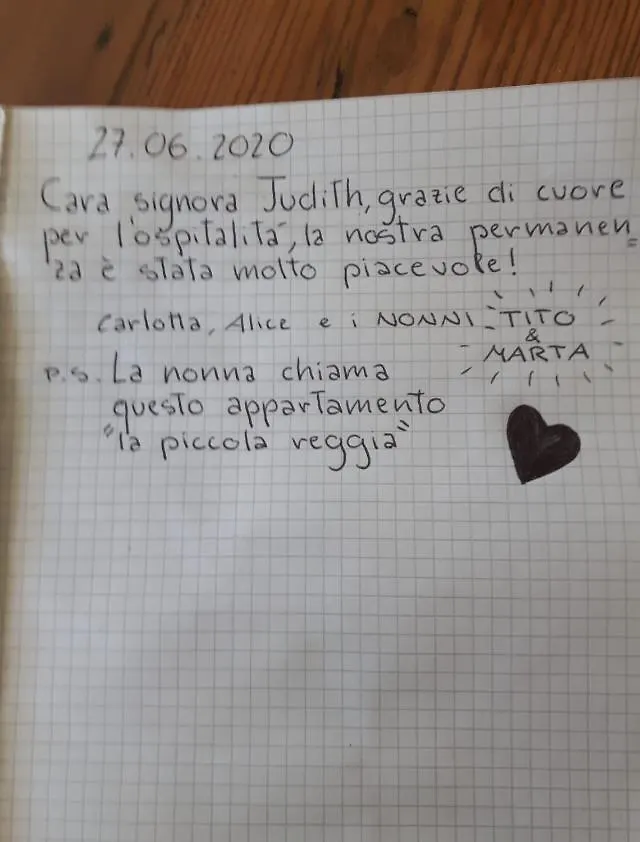 27.06.2020
Cara signora Judith, grazie di cuore
per l'ospitalità, la nostra permanen=
za è stata molto piacevole!
Carlotta, Alice e i NONNI TITO
&
MARTA
p.s. La nonna chiama
questo appartamento
"la piccola reggia"